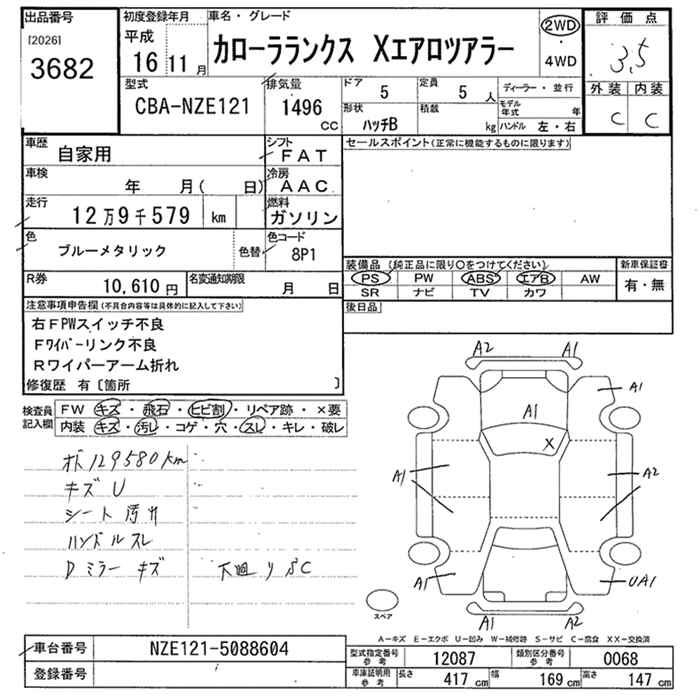 出品番号
[2026]
3682
初度登録年月
平成
16 11 月
車名・グレード
カローラランクス Xエアロツアラー
2WD
・
4WD
評価点
3.5
外装 内装
C C
型式
CBA-NZE121
排気量
1496
CC
ドア
5
定員
5 人
形状
ハッチB
積載
kg
ディーラー・並行
モデル年式 年
ハンドル 左・右
車歴
自家用
シフト
FAT
車検
年 月( 日)
冷房
AAC
走行
12万9千579 km
燃料
ガソリン
色
ブルーメタリック
色替
色コード
8P1
R券
10,610 円
名変通知期限
月 日
セールスポイント(正常に機能するものに限ります)
装備品 (純正品に限り○をつけてください)
新車保証書
PS PW ABS エアB AW
有・無
SR ナビ TV カワ
後日品
注意事項申告欄(不具合内容等は具体的に記入して下さい)
右FPWスイッチ不良
Fワイパーリンク不良
Rワイパーアーム折れ
修復歴 有〔箇所 〕
検査員記入欄
FW キズ・飛石・ヒビ割・リペア跡・×要
内装 キズ・汚レ・コゲ・穴・スレ・キレ・破レ
129580km
キズ U
シート汚レ
ハンドルスレ
Dミラーキズ
下廻りSC
A2 A1
A1
A1
X
A1
A2
A1
UA1
A1 A2
スペア
A-キズ E-エクボ U-凹み W-補修跡 S-サビ C-腐食 XX-交換済
車台番号
NZE121-5088604
登録番号
型式指定番号
参考
12087
類別区分番号
参考
0068
車庫証明用
参考
長さ
417 cm
幅
169 cm
高さ
147 cm